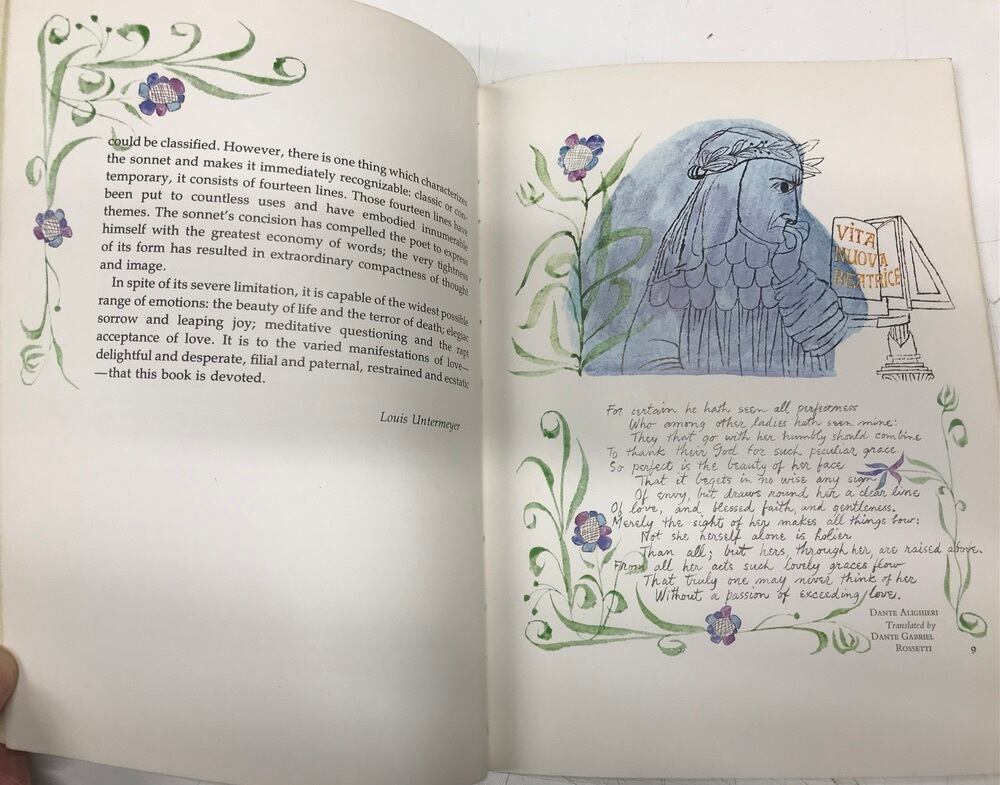 could be classified. However, there is one thing which characterizes
the sonnet and makes it immediately recognizable: classic or con-
temporary, it consists of fourteen lines. Those fourteen lines have
been put to countless uses and have embodied innumerable
themes. The sonnet's concision has compelled the poet to express
himself with the greatest economy of words; the very tightness
of its form has resulted in extraordinary compactness of thought
and image.
In spite of its severe limitation, it is capable of the widest possible
range of emotions: the beauty of life and the terror of death; elegiac
sorrow and leaping joy; meditative questioning and the rapt
acceptance of love. It is to the varied manifestations of love—
delightful and desperate, filial and paternal, restrained and ecstatic
—that this book is devoted.
Louis Untermeyer
VITA
NUOVA
BEATRICE
For certain he hath seen all perfectness
Who among other ladies hath seen mine:
They that go with her humbly should combine
To thank their God for such peculiar grace
So perfect is the beauty of her face
That it begets in no wise any sign
Of envy, but draws round her a clear line
Of love, and blessed faith, and gentleness.
Merely the sight of her makes all things bow:
Not she herself alone is holier
Than all; but hers, through her, are raised above.
From all her acts such lovely graces flow
That truly one may never think of her
Without a passion of exceeding love.
DANTE ALIGHIERI
Translated by
DANTE GABRIEL
ROSSETTI
9